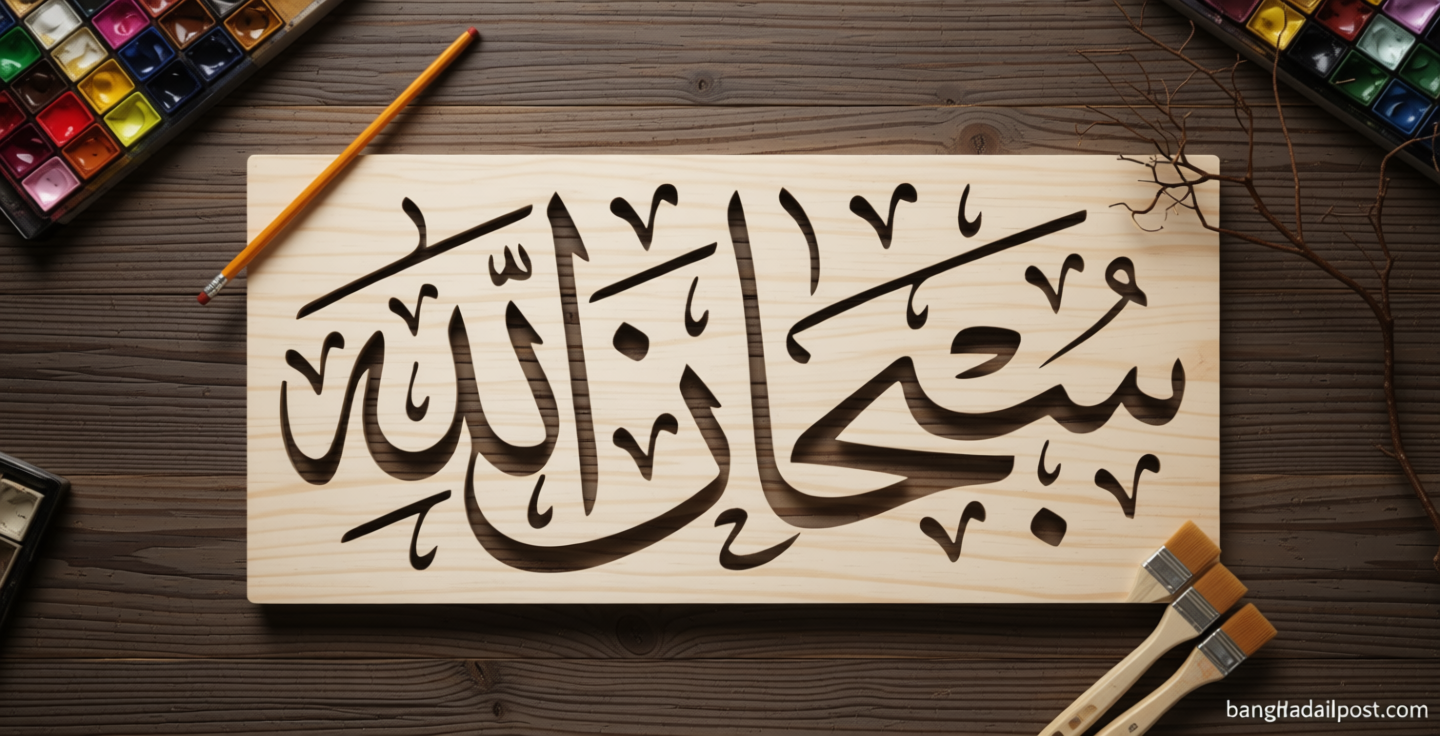 سُبْحَانَ اللَّهِ
bangHadailpost.com